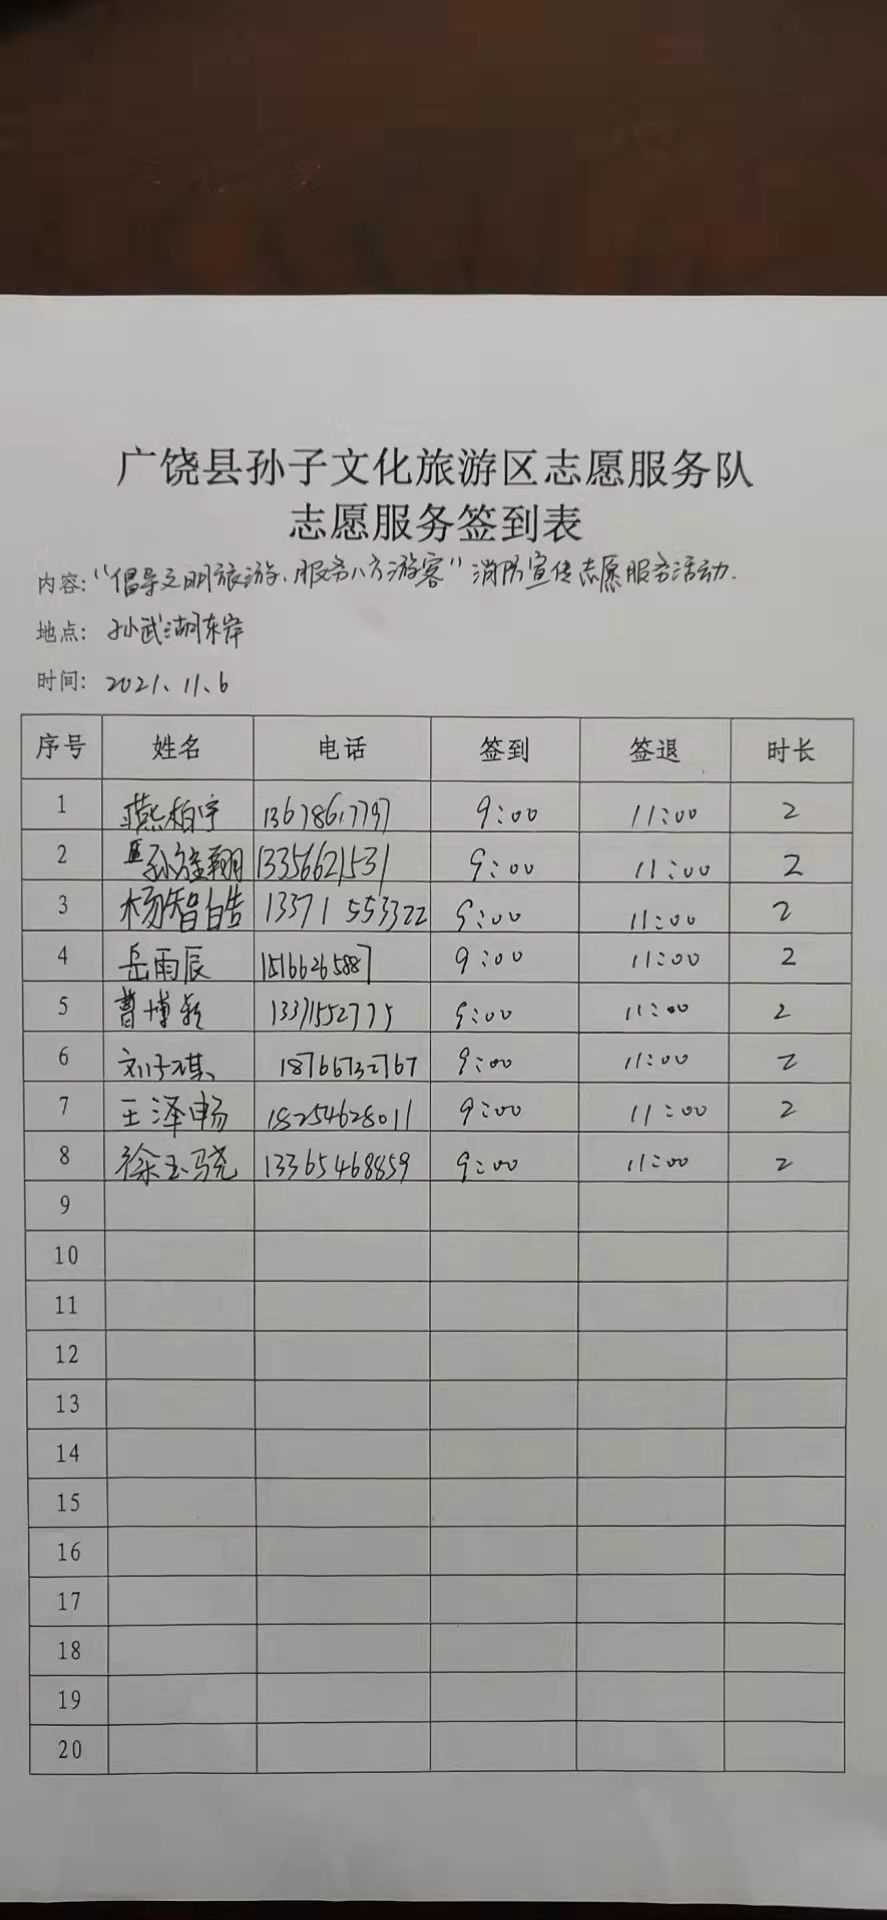 广饶县孙子文化旅游区志愿服务队
志愿服务签到表
内容:“倡导文明旅游、服务八方游客”消防宣传志愿服务活动.
地点: 孙武湖东岸
时间: 2021、11、6
序号 姓名 电话 签到 签退 时长
1 燕柏宇 13678617797 9:00 11:00 2
2 13356621531 9:00 11:00 2
3 杨智皓 13371553322 9:00 11:00 2
4 岳雨辰 15166265887 9:00 11:00 2
5 曹博 13371552775 9:00 11:00 2
6 刘子琪 18766732767 9:00 11:00 2
7 王泽畅 18254628011 9:00 11:00 2
8 徐玉骁 13365468859 9:00 11:00 2
9
10
11
12
13
14
15
16
17
18
19
20